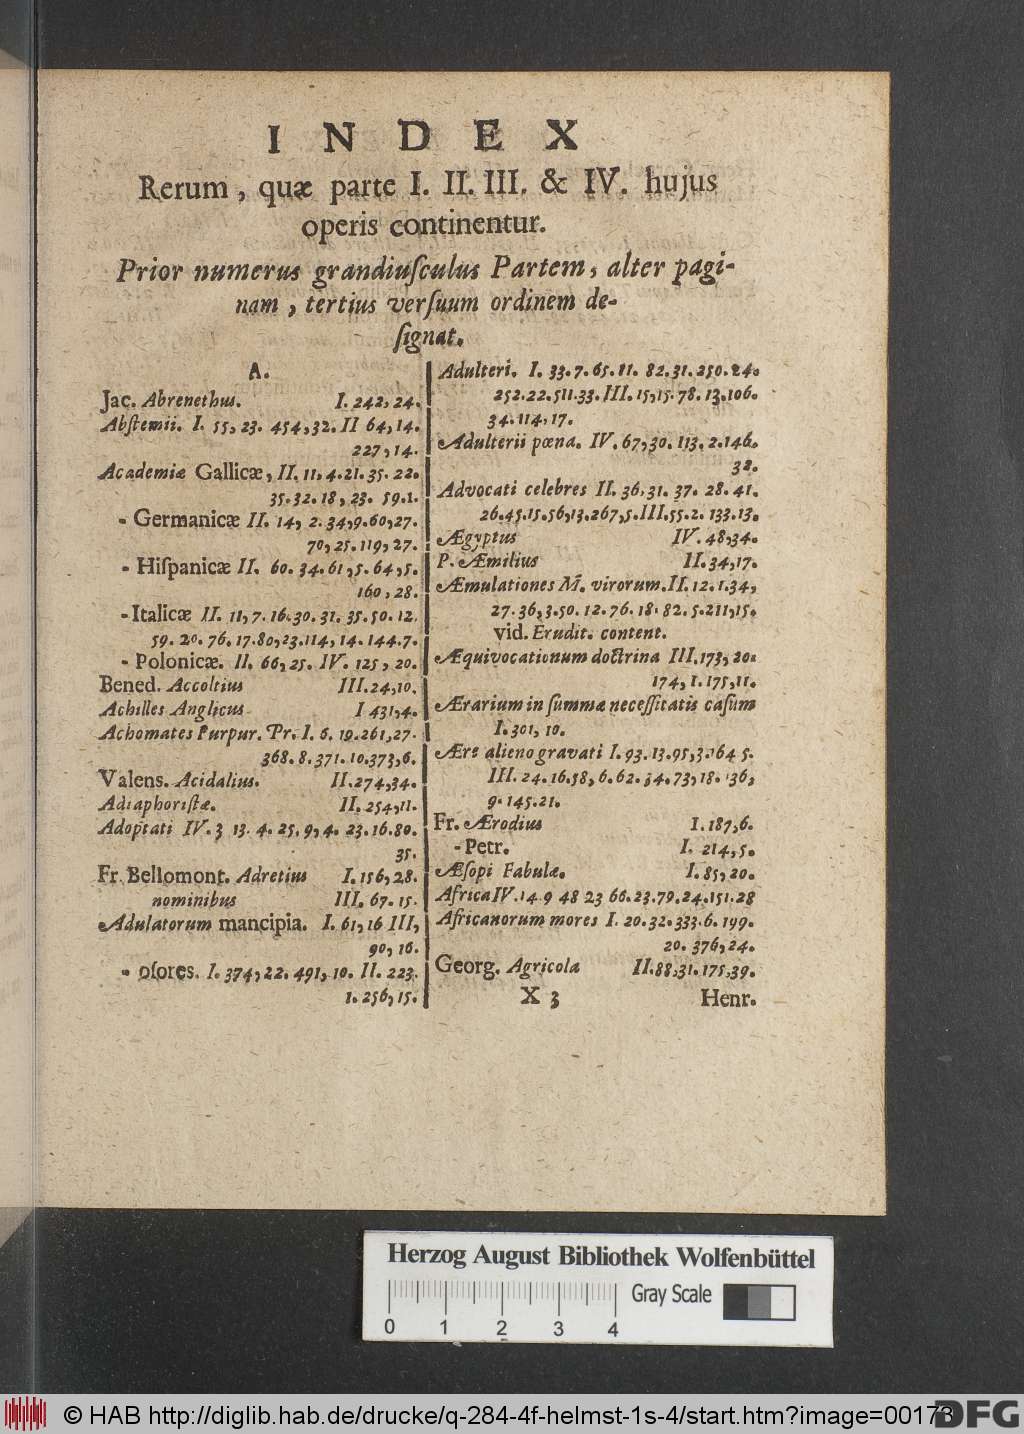 INDEX
Rerum, quæ parte I. II. III. & IV. hujus
operis continentur.
Prior numerus grandiuſculus Partem, alter pagi-
nam, tertius verſuum ordinem de-
ſignat.
A.
Jac. Abrenethus. I. 242, 24.
Abſtemii. I. 55, 23. 454, 32. II 64, 14.
227, 14.
Academiæ Gallicæ, II. 11, 4. 21. 35. 22.
35. 32. 18, 23. 59. 1.
- Germanicæ II. 14, 2. 34, 9. 60, 27.
70, 25. 119, 27.
- Hiſpanicæ II. 60. 34. 61, 5. 64, 5.
160, 28.
- Italicæ II. 11, 7. 16. 30. 31. 35. 50. 12.
59. 20. 76. 17. 80, 23. 114, 14. 144. 7.
- Polonicæ. II. 66, 25. IV. 125, 20.
Bened. Accoltius III. 24, 10.
Achilles Anglicus I 431, 4.
Achomates Purpur. Pr. I. 6. 19. 261, 27.
368. 8. 371. 10. 373, 6.
Valens. Acidalius. II. 274, 34.
Adiaphoriſtæ. II. 254, 11.
Adoptati IV. 3 13. 4. 25. 9, 4. 23. 16. 80.
35.
Fr. Bellomont. Adretius I. 156, 28.
nominibus III. 67. 15.
Adulatorum mancipia. I. 61, 16 III,
90, 16.
- oſores. I. 374, 22. 491, 10. II. 223.
1. 256, 15.
Adulteri. I. 33. 7. 65. 11. 82. 31. 250. 24.
252. 22. 511. 33. III. 15, 15. 78. 13. 106.
34. 114, 17.
Adulterii pœna. IV. 67, 30. 113. 2. 146.
32.
Advocati celebres II. 36, 31. 37. 28. 41.
26. 45. 15. 56, 13. 267, 5. III. 55. 2. 133. 13.
Ægyptus IV. 48, 34.
P. Æmilius II. 34, 17.
Æmulationes M. virorum. II. 12. 1. 34,
27. 36, 3. 50. 12. 76. 18. 82. 5. 211, 15.
vid. Erudit. content.
Æquivocationum doctrina III. 173, 20.
174, 1. 175, 11.
Ærarium in ſumma neceſſitatis caſum
I. 301, 10.
Ære alieno gravati I. 93. 13. 95, 3. 164 5.
III. 24. 16. 58, 6. 62. 34. 73, 18. 136,
9. 145. 21.
Fr. Ærodius I. 187, 6.
- Petr. I. 214, 5.
Æſopi Fabulæ. I. 85, 20.
Africa IV. 14 9 48 23 66. 23. 79. 24. 151. 28
Africanorum mores I. 20. 32. 333. 6. 199.
20. 376, 24.
Georg. Agricola II. 88, 31. 175, 39.
X 3 Henr.
Herzog August Bibliothek Wolfenbüttel
Gray Scale
0 1 2 3 4
© HAB http://diglib.hab.de/drucke/q-284-4f-helmst-1s-4/start.htm?image=00173
DFG